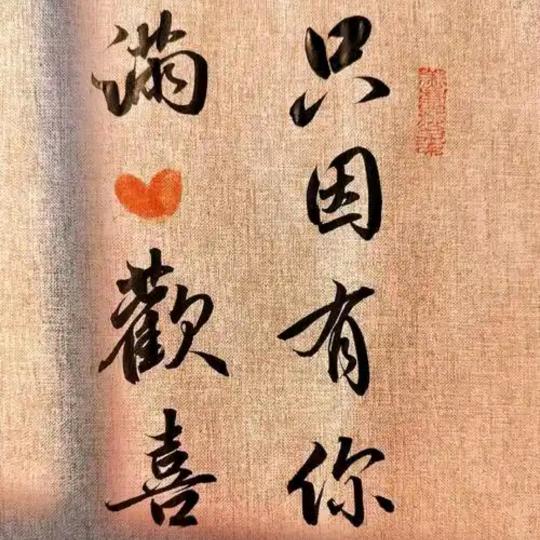 只因有你
满❤歡喜